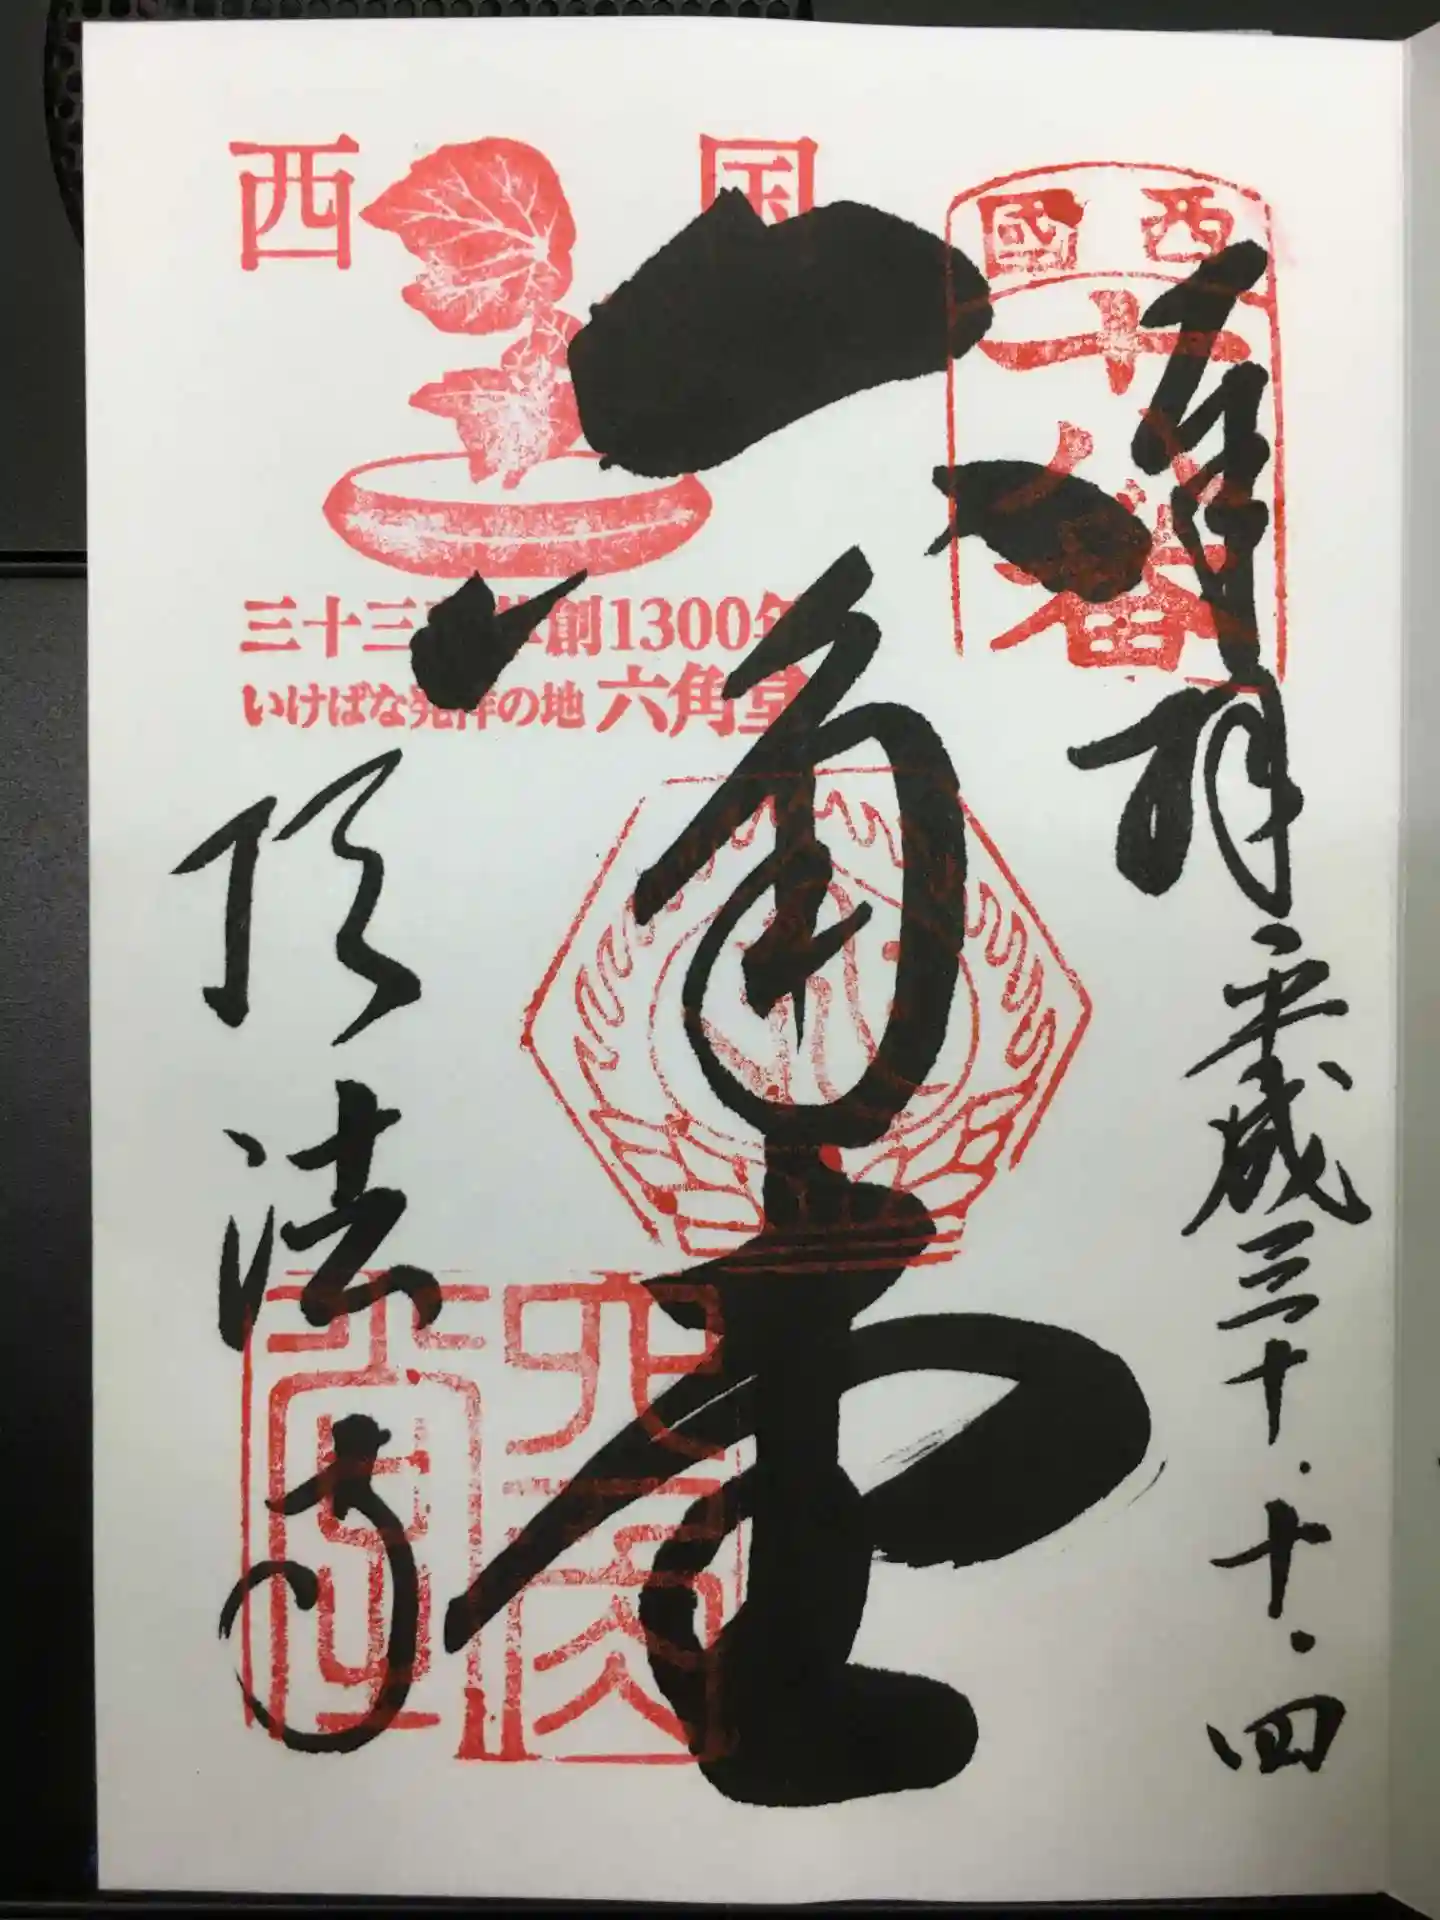 西國
十八番
奉拝 平成三十.十.四
西国
三十三所草創1300年
いけばな発祥の地 六角堂
六角堂
頂法寺